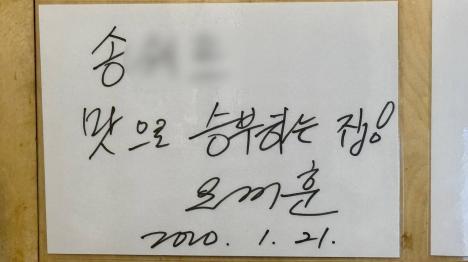 송
맛으로 승부하는 집!
오세훈
2020. 1. 21.